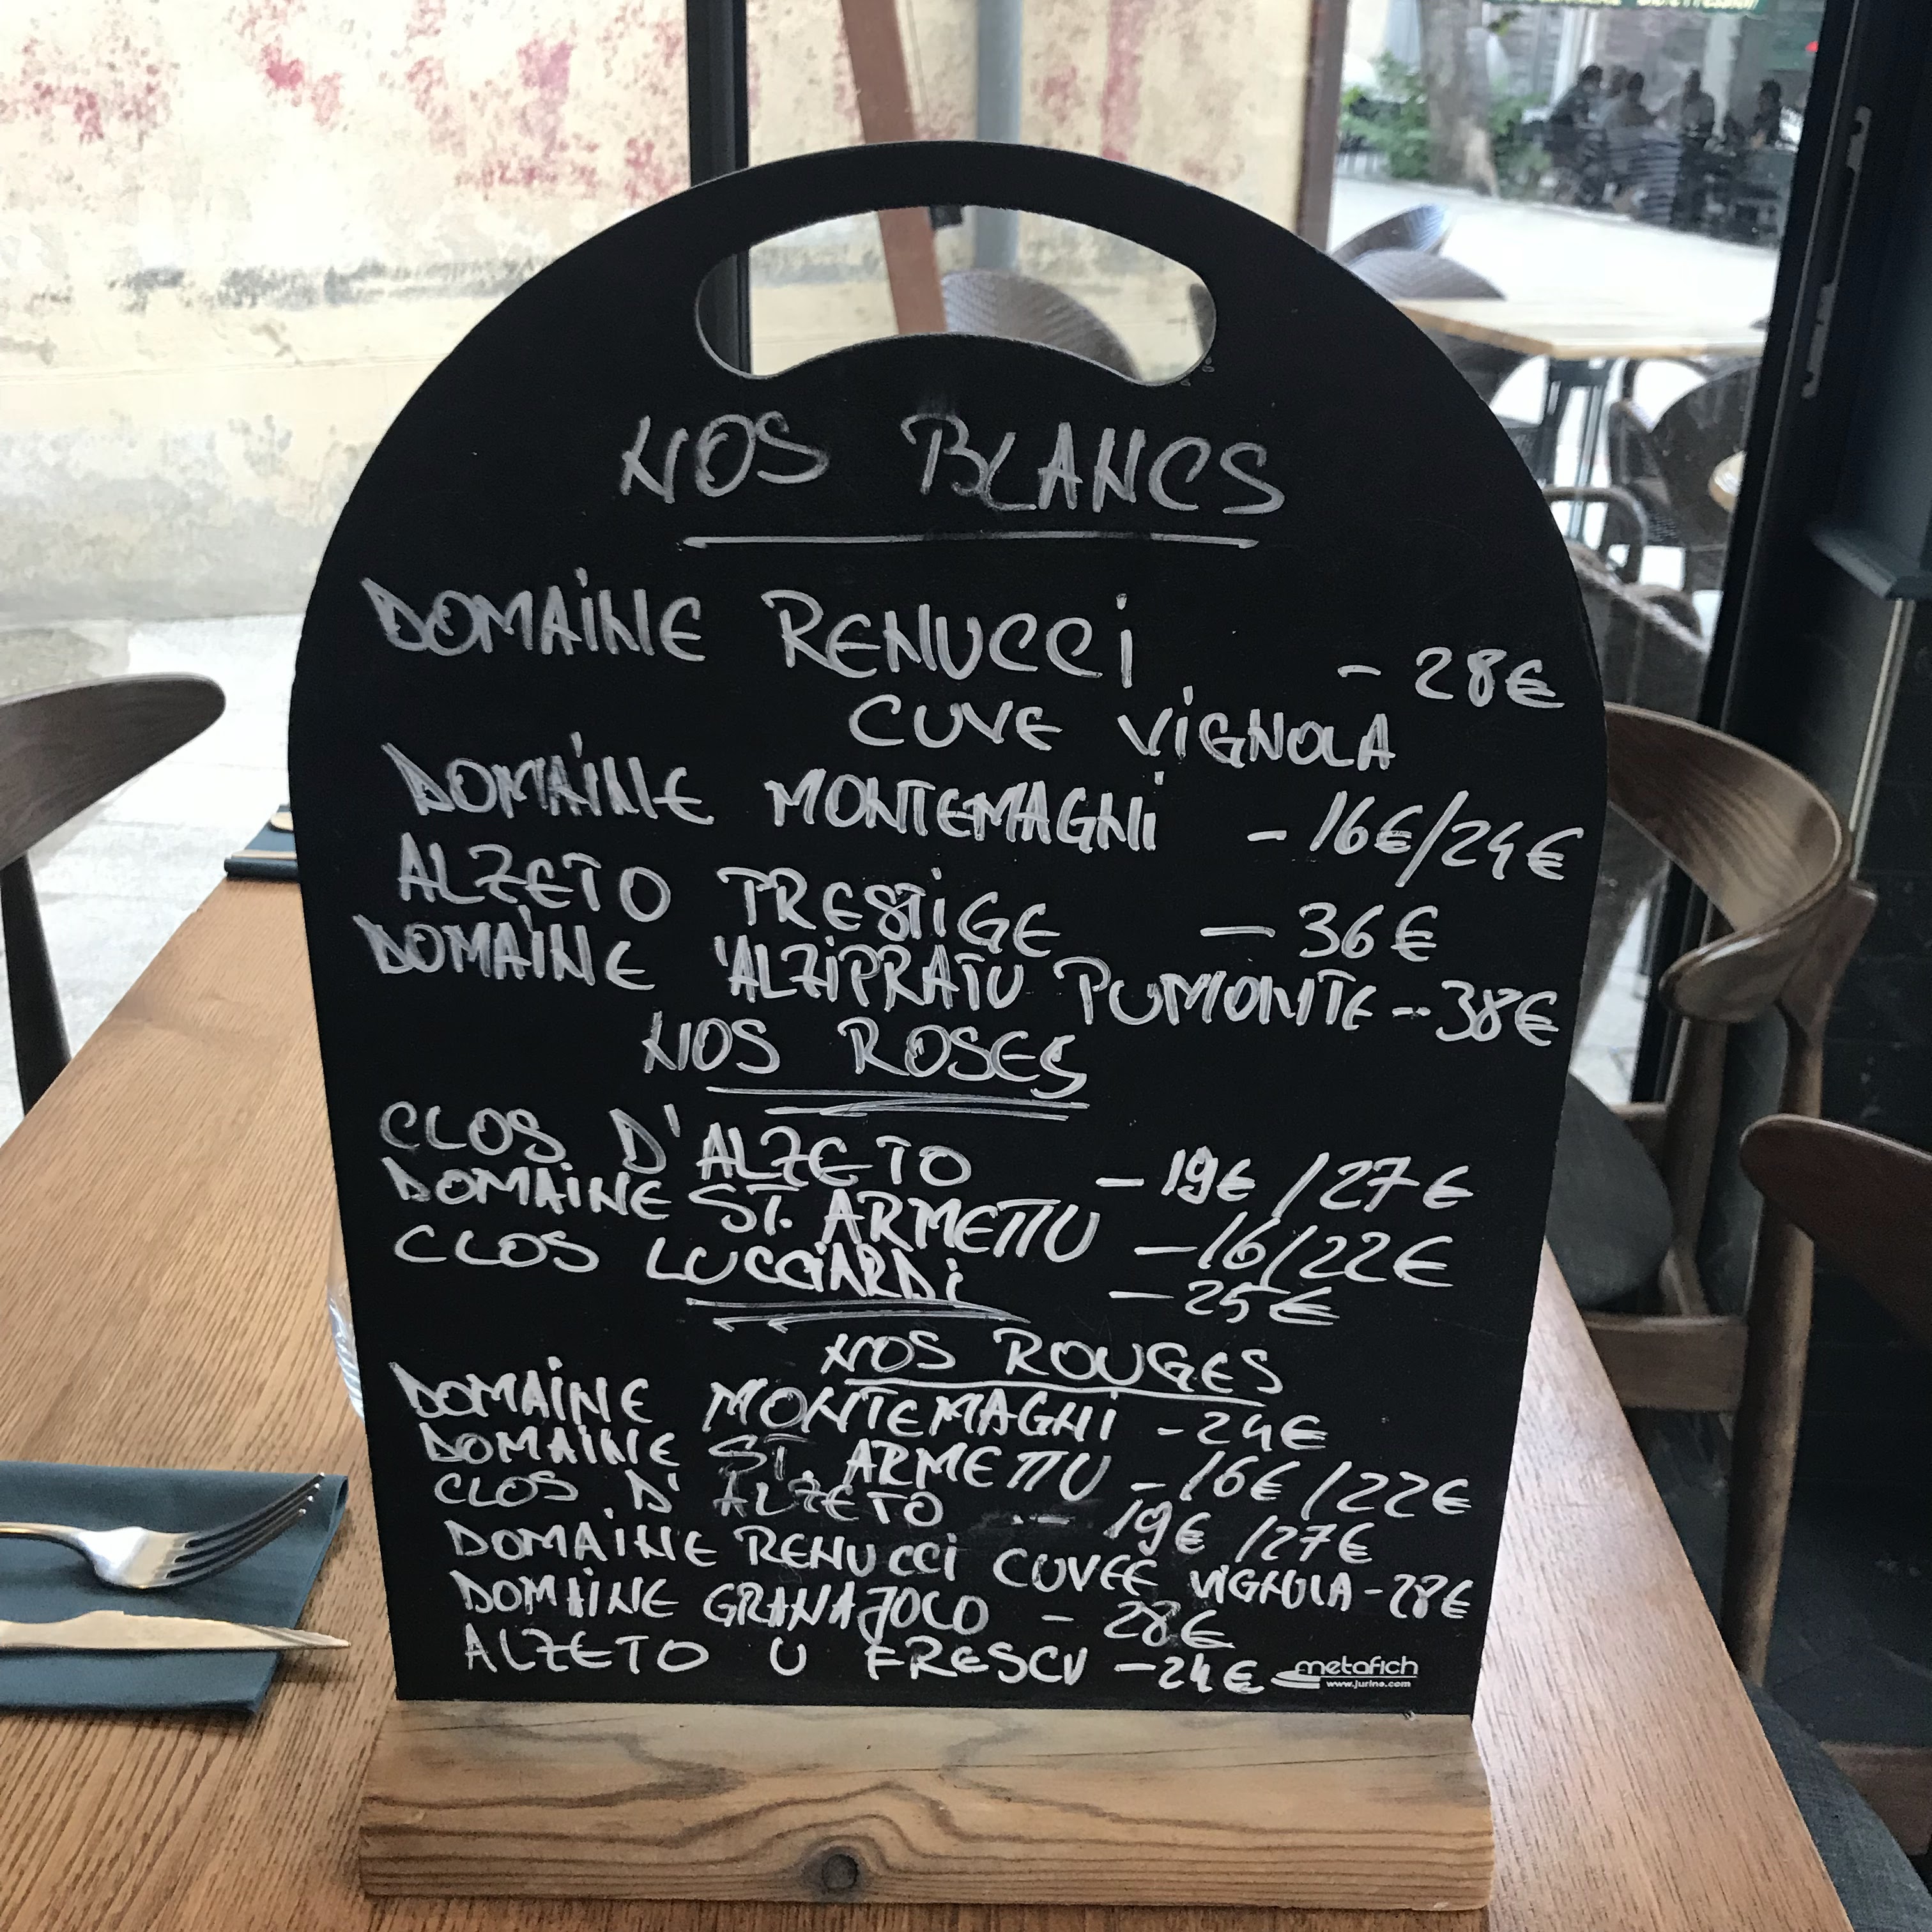 NOS BLANCS
DOMAINE RENUCCI - 28€
CUVE VIGNOLA
DOMAINE MONTEMAGNI - 16€/24€
ALZETO PRESTIGE - 36€
DOMAINE 'ALZIPRATU PUMONTE -- 38€
NOS ROSES
CLOS D'ALZETO - 19€ /27€
DOMAINE ST. ARMETTU - 16/22€
CLOS LUCCIARDI - 25€
NOS ROUGES
DOMAINE MONTEMAGNI - 24€
DOMAINE ST. ARMETTU - 16€ /22€
CLOS D'ALZETO -- 19€ /27€
DOMAINE RENUCCI CUVEE VIGNOLA - 28€
DOMAINE GRANAJOLO - 28€
ALZETO U FRESCU - 24€
metafich
www.jurine.com